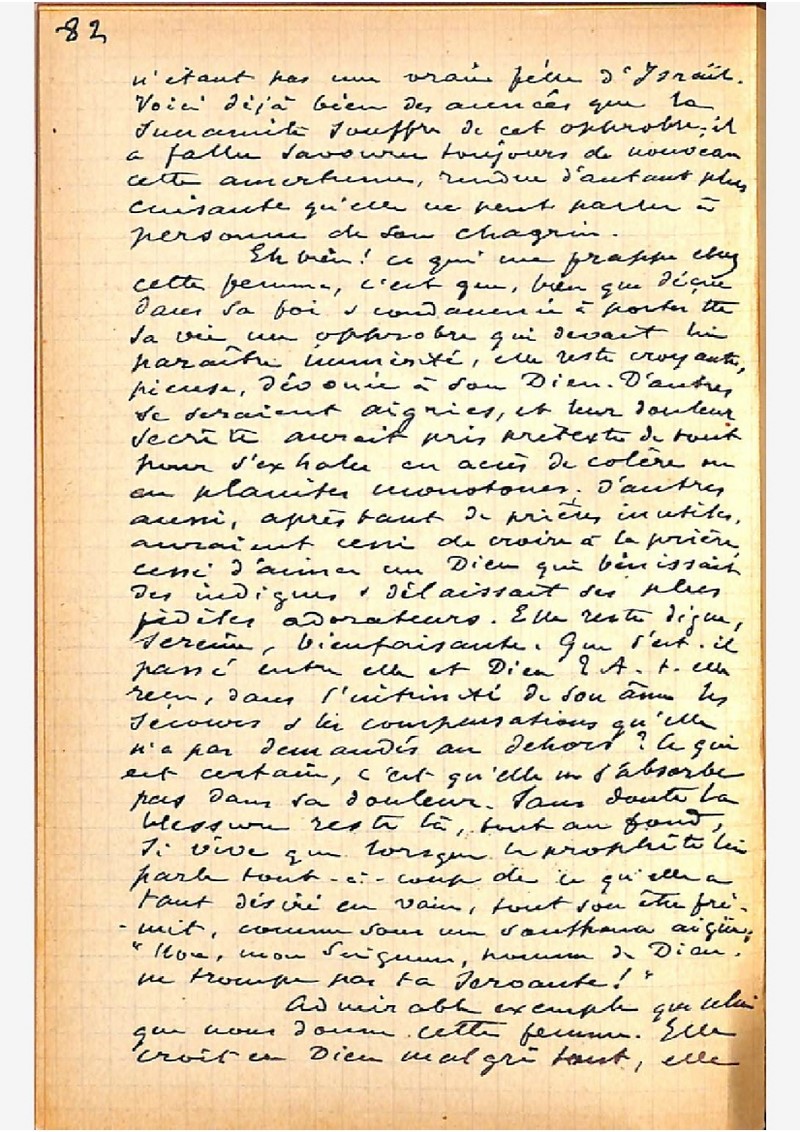 82
n'étant pas une vraie fille d'Israël.
Voici déjà bien des années que la
Sunamite souffre de cet opprobre; il
a fallu savourer toujours de nouveau
cette amertume, rendue d'autant plus
cuisante qu'elle ne peut parler à
personne de son chagrin.
Eh bien! ce qui me frappe chez
cette femme, c'est que, bien que déçue
dans sa foi & condamnée à porter tte
sa vie un opprobre qui devait lui
paraître immérité, elle reste croyante,
pieuse, dévouée à son Dieu. D'autres
se seraient aigries, et leur douleur
secrète aurait pris prétexte de tout
pour s'exhaler en accès de colère ou
en plaintes monotones; d'autres
aussi, après tant de prières inutiles,
auraient cessé de croire à la prière,
cessé d'aimer un Dieu qui bénissait
des indignes & délaissait ses plus
fidèles adorateurs. Elle reste digne,
sereine, bienfaisante. Que s'est-il
passé entre elle et Dieu? A-t-elle
reçu, dans l'intimité de son âme les
secours & les compensations qu'elle
n'a pas demandés au dehors? Ce qui
est certain, c'est qu'elle ne s'absorbe
pas dans sa douleur. Sans doute la
blessure reste là, tout au fond,
si vive que lorsque le prophète lui
parle tout-à-coup de ce qu'elle a
tant désiré en vain, tout son être fré-
-mit, comme sous une souffrance aigüe:
"Non, mon Seigneur, homme de Dieu,
ne trompe pas ta servante!"
Admirable exemple que celui
que nous donne cette femme. Elle
croit en Dieu malgré tout, elle